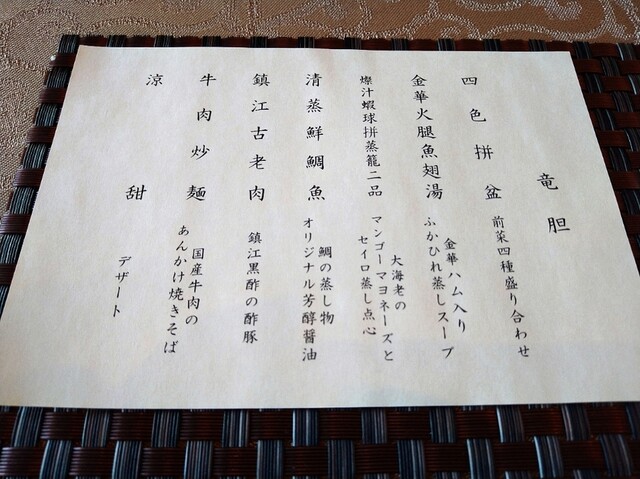 竜胆
四色拼盆
前菜四種盛り合わせ
金華火腿魚翅湯
金華ハム入り
ふかひれ蒸しスープ
燦汁蝦球拼蒸籠二品
大海老の
マンゴーマヨネーズと
セイロ蒸し点心
清蒸鮮鯛魚
鯛の蒸し物
オリジナル芳醇醤油
鎮江古老肉
鎮江黒酢の酢豚
牛肉炒麺
国産牛肉の
あんかけ焼きそば
涼甜
デザート